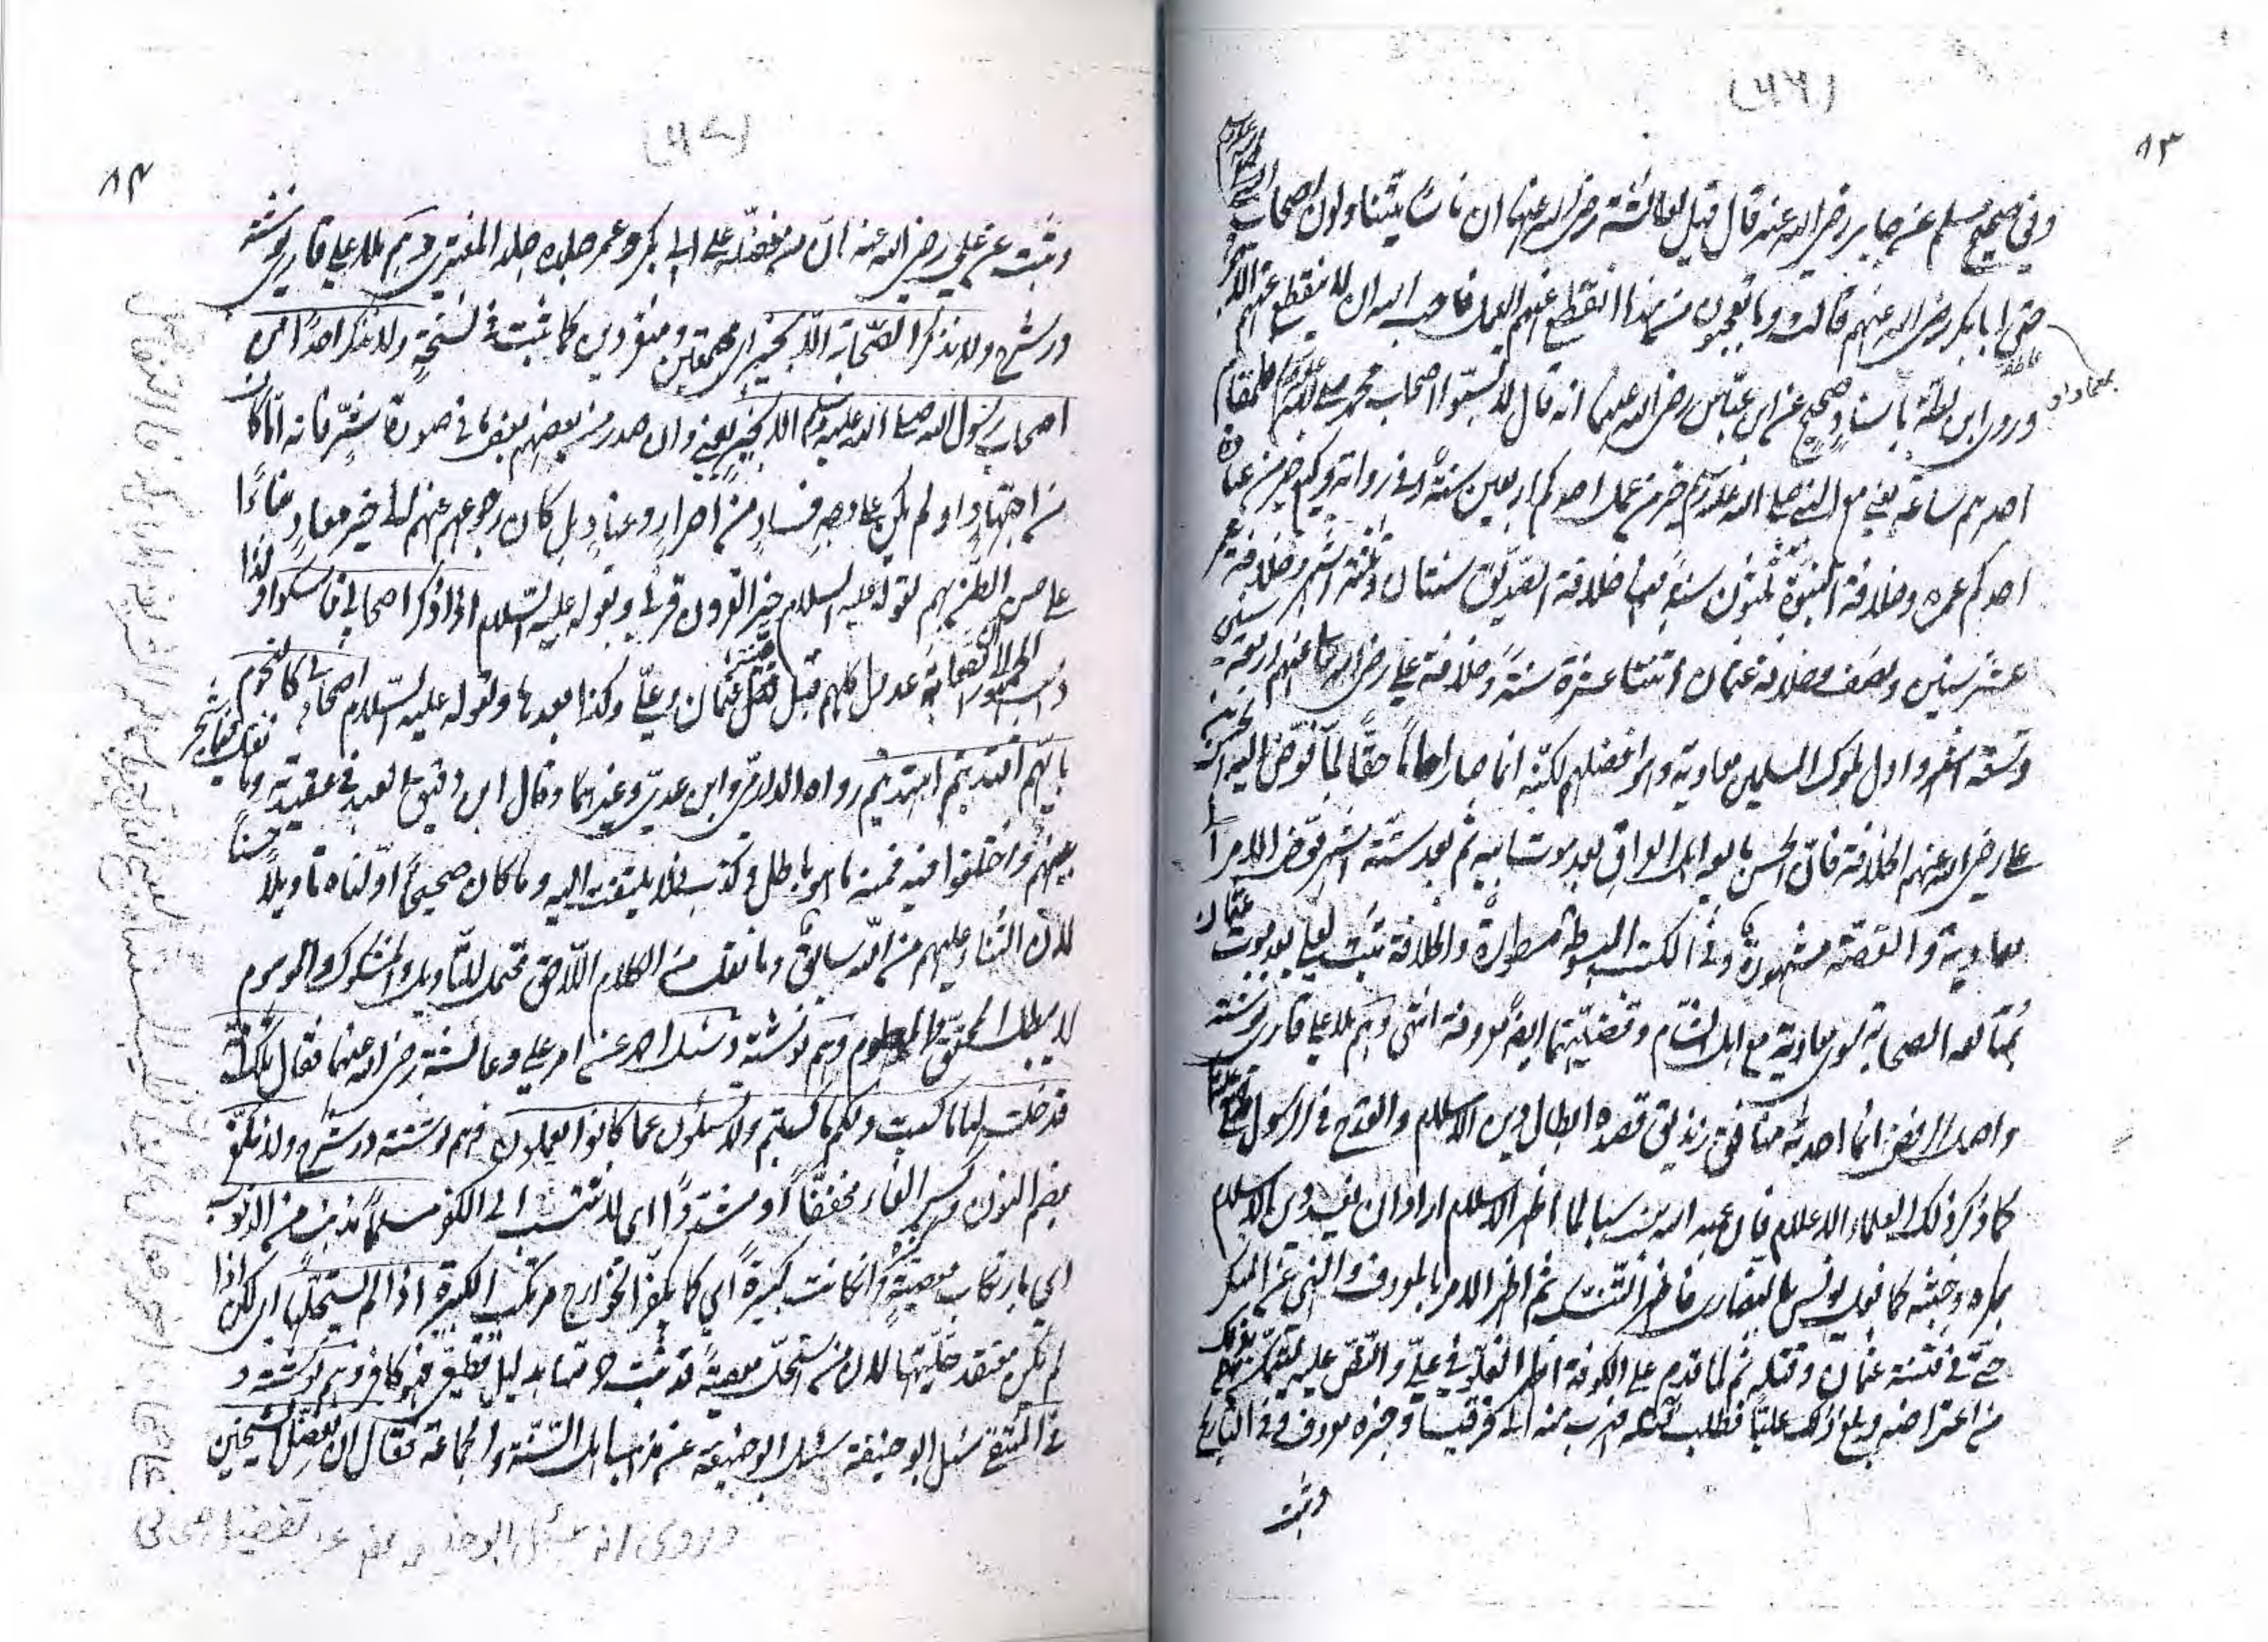 (٦٦)
٨٣
وفي صحيح مسلم عن جابر رضي الله عنه قال قيل لعائشة رضي الله عنها ان ناسًا يتناولون اصحاب النبي
حتى ابا بكر وعمر رضي الله عنهم قالت وما تعجبون من هذا انقطع عنهم العمل فاحب الله ان لا ينقطع عنهم الاجر
وروى ابن بطة باسنادٍ صحيح عن ابن عباس رضي الله عنهما انه قال لا تسبوا اصحاب محمد صلى الله عليه وسلم فلمقام
احدهم ساعة يعني مع النبي صلى الله عليه وسلم خير من عمل احدكم اربعين سنة وفي رواية وكيع خير من عبادة
احدكم عمره وخلافة النبوة ثلثون سنة منها خلافة الصديق سنتان وثلثة اشهر وخلافة عمر
عشر سنين ونصف وخلافة عثمان اثنتا عشرة سنة وخلافة علي رضي الله تعالى عنهم اربع سنين
وتسعة اشهر واول ملوك المسلمين معاوية وهو افضلهم لكنه انما صار امامًا حقًا لما فوض اليه الحسن بن
علي رضي الله عنهم الخلافة فان الحسن بايعه اهل العراق بعد موت ابيه ثم بعد ستة اشهر فوض الامر الى
معاوية والقصة مشهورة وفي الكتب المبسوطة مسطورة والخلافة ثبتت لعلي بعد موت عثمان
بمتابعة الصحابة سوى معاوية مع اهل الشام وقضيتهما ايضا معروفة انتهى وهم ملا علي قاري نوشته
واصل الرفض انما احدثه منافق زنديق قصده ابطال دين الاسلام والقدح في الرسول
كما ذكر ذلك العلماء الاعلام فان عبد الله بن سبا لما اظهر الاسلام اراد ان يفسد دين الاسلام
بمكره وخبثه كما فعل بولس بالنصارى فاظهر التنسك ثم اظهر الامر بالمعروف والنهي عن المنكر
حتى في فتنة عثمان وقتله ثم لما قدم على الكوفة اظهر الغلو في علي والنص عليه ليتمكن بذلك
من اعتراضه وبلغ ذلك عليًا فطلب قتله فهرب منه الى قرقيسا وخبره معروف في التاريخ
وثبت
(٦٧)
٨٤
وثبت عن علي رضي الله عنه ان من فضله على ابي بكر وعمر جلده جلد المفتري وهم ملا علي قاري نوشته
در شرح ولا نذكر الصحابة الا بخير اي مجتمعين ومنفردين كما ثبت في نسخة ولا نذكر احدًا من
اصحاب رسول الله صلى الله عليه وسلم الا بخير يعني وان صدر من بعضهم بعض ما في صورة شرّ فانه اما كان
من اجتهادٍ او لم يكن على وجه فسادٍ من اصرارٍ وعنادٍ بل كان رجوعهم عنهم الى خير معادٍ بناءً
على حسن الظن بهم لقوله عليه السلام خير القرون قرني ولقوله عليه السلام اذا ذكر اصحابي فامسكوا ولذا
ذهب الجمهور الى ان الصحابة عدول كلهم قبل فتنة عثمان وعلي وكذا بعدها ولقوله عليه السلام اصحابي كالنجوم
بايهم اقتديتم اهتديتم رواه الدارمي وابن عدي وغيرهما وقال ابن دقيق العيد في عقيدته وما نقل فيما شجر
بينهم واختلفوا فيه فمنه ما هو باطل وكذب فلا يلتفت اليه وما كان صحيحًا اولناه تاويلًا حسنًا
لان الثناء عليهم من الله سابق وما نقل من الكلام اللاحق محتمل للتاويل والمشكوك والموهوم
لا يبطل المحقق والمعلوم وهم نوشته وسئل احمد عن امر علي وعائشة رضي الله عنهما فقال تلك امة
قد خلت لها ما كسبت ولكم ما كسبتم ولا تسئلون عما كانوا يعملون وهم نوشته در شرح ولا نكفر
بضم النون وكسر الفاء مخففًا او مشددًا اي لا ننسب الى الكفر مسلمًا بذنب من الذنوب
اي بارتكاب معصيةٍ وان كانت كبيرةً اي كما يكفر الخوارج مرتكب الكبيرة اذا لم يستحلها اي لكن اذا
لم يكن معتقد حليتها لان من استحل معصيةً قد ثبت حرمتها بدليل قطعي فهو كافر وهم نوشته و
في المنتقى سئل ابو حنيفة سئل ابو حنيفة عن مذهب اهل السنة والجماعة فقال ان تفضل الشيخين